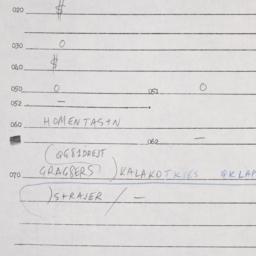 020 $
030 O
040 $
050 O 051 O
052 —
060 HOMENTASTN
062 —
(QG81DREJT
070 GRAG8ERS) KALAKOTKIES QKLAP
)STRAJER / —